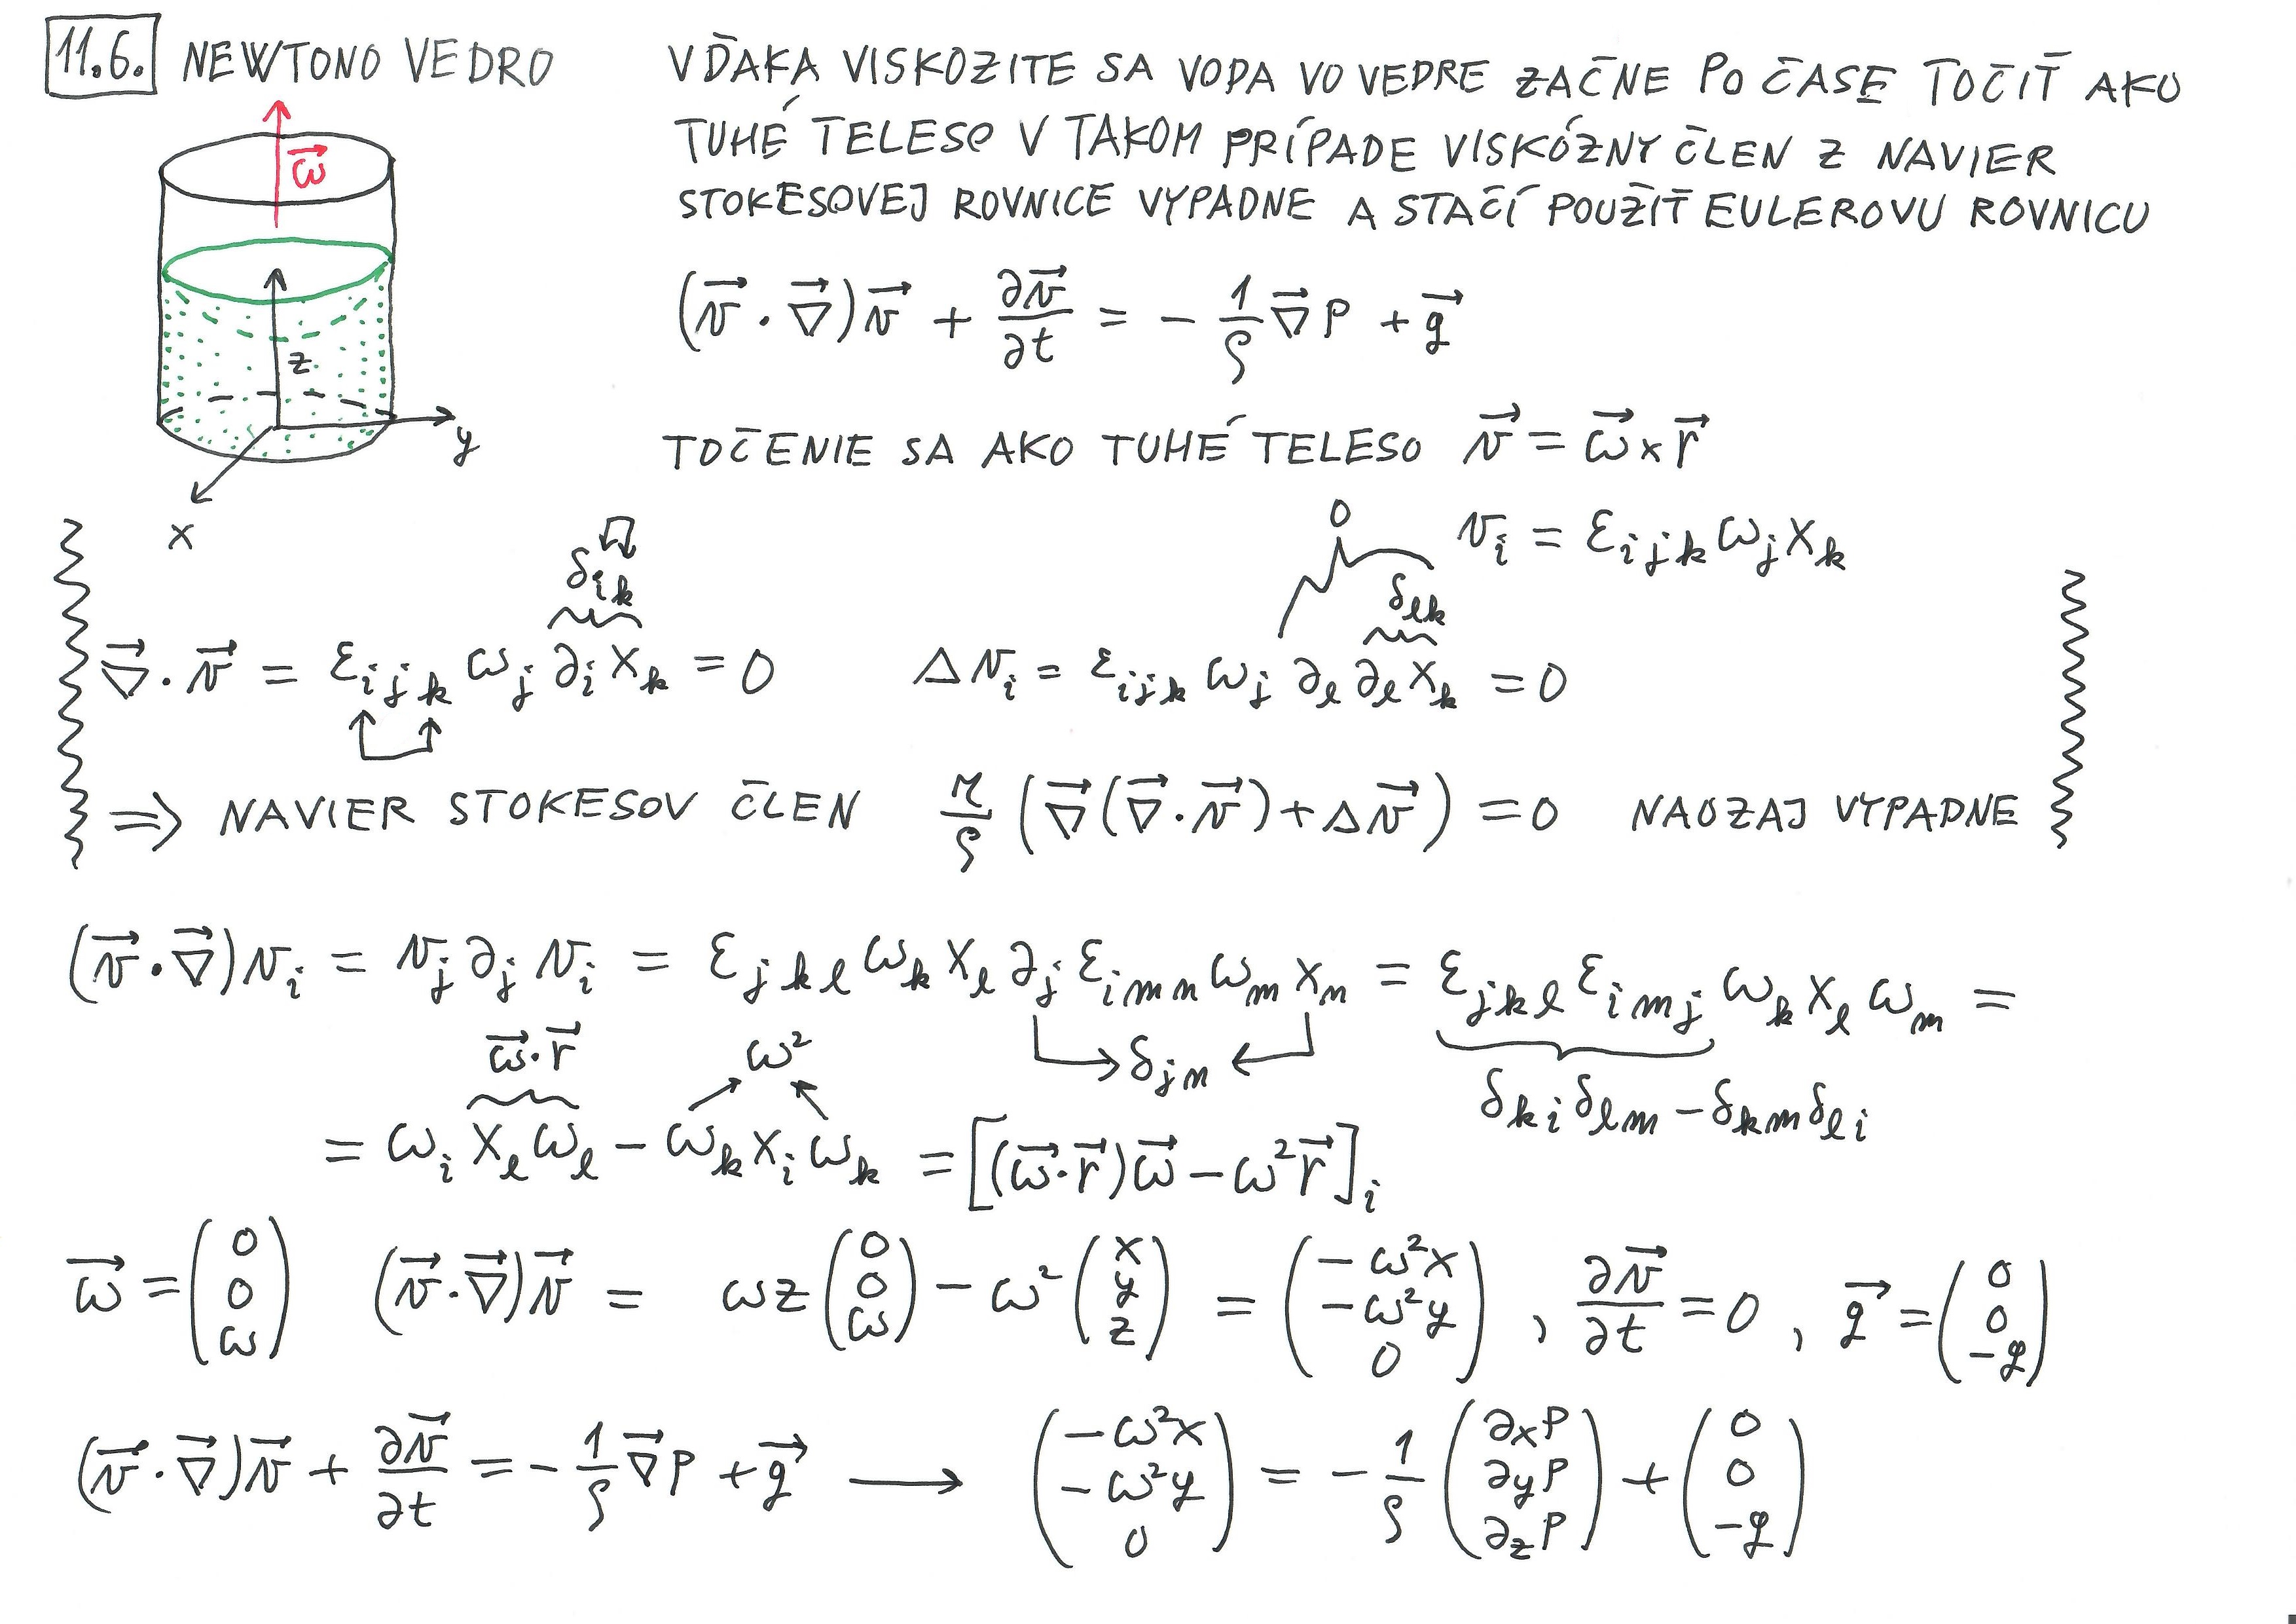 11.6. NEWTONO VEDRO
VĎAKA VISKOZITE SA VODA VO VEDRE ZAČNE PO ČASE TOČIŤ AKO
TUHÉ TELESO V TAKOM PRÍPADE VISKÓZNY ČLEN Z NAVIER
STOKESOVEJ ROVNICE VYPADNE A STAČÍ POUŽIŤ EULEROVU ROVNICU
ω⃗
z
y
x
(v⃗·∇⃗)v⃗ + ∂v⃗/∂t = - 1/ρ ∇⃗p + g⃗
TOČENIE SA AKO TUHÉ TELESO v⃗ = ω⃗×r⃗
v_i = ε_ijk ω_j x_k
δ_ik
0
δ_lk
∇⃗·v⃗ = ε_ijk ω_j ∂_i x_k = 0 Δv_i = ε_ijk ω_j ∂_l ∂_l x_k = 0
⇒ NAVIER STOKESOV ČLEN η/ρ (∇⃗(∇⃗·v⃗)+Δv⃗) = 0 NAOZAJ VYPADNE
(v⃗·∇⃗)v_i = v_j ∂_j v_i = ε_jkl ω_k x_l ∂_j ε_imn ω_m x_n = ε_jkl ε_imj ω_k x_l ω_m =
ω⃗·r⃗ ω² δ_jn δ_ki δ_lm - δ_km δ_li
= ω_i x_l ω_l - ω_k x_i ω_k = [(ω⃗·r⃗)ω⃗ - ω²r⃗]_i
ω⃗ = (0 0 ω) (v⃗·∇⃗)v⃗ = ωz (0 0 ω) - ω² (x y z) = (-ω²x -ω²y 0), ∂v⃗/∂t = 0, g⃗ = (0 0 -g)
(v⃗·∇⃗)v⃗ + ∂v⃗/∂t = - 1/ρ ∇⃗p + g⃗ ⟶ (-ω²x -ω²y 0) = - 1/ρ (∂xp ∂yp ∂zp) + (0 0 -g)